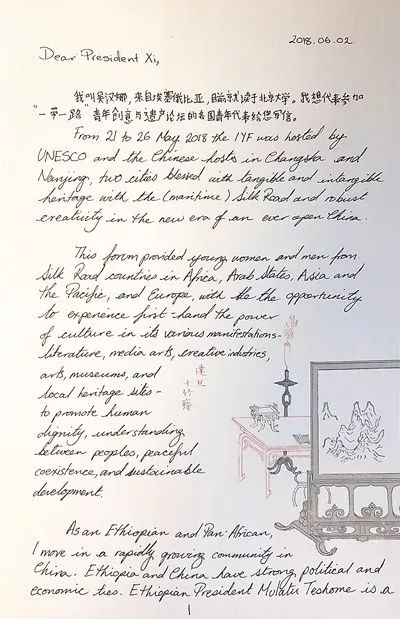 2018.06.02
Dear President Xi,
我叫吴汉娜，来自埃塞俄比亚，目前就读于北京大学。我想代表参加
"一带一路"青年创意与遗产论坛的各国青年代表给您写信。
From 21 to 26 May 2018 the IYF was hosted by
UNESCO and the Chinese hosts in Changsha and
Nanjing, two cities blessed with tangible and intangible
heritage with the (maritime) Silk Road and robust
creativity in the new era of an ever open China.
This forum provided young women and men from
Silk Road countries in Africa, Arab States, Asia and
the Pacific, and Europe, with the the opportunity
to experience first-hand the power
of culture in its various manifestations-
literature, media arts, creative industries,
arts, museums, and
local heritage sites-
to promote human
dignity, understanding
between peoples, peaceful
coexistence, and sustainable
development.
十竹斋
As an Ethiopian and Pan-African,
I move in a rapidly growing community in
China. Ethiopia and China have strong political and
economic ties. Ethiopian President Mulatu Teshome is a
1